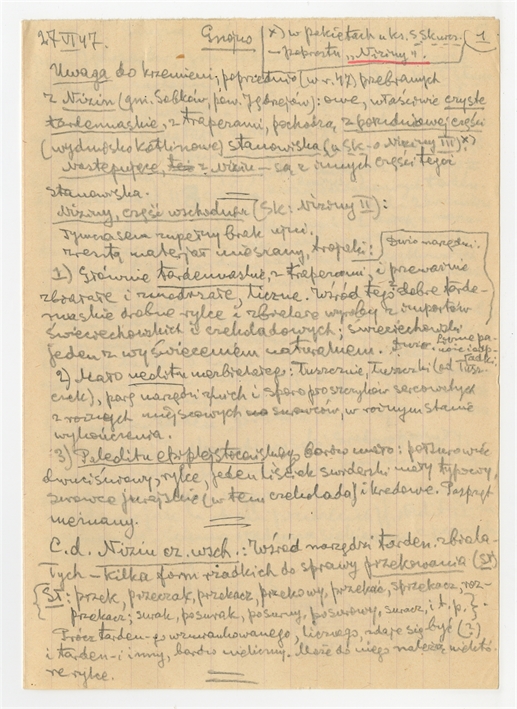 27 VI 47. Gnojno x) w pakietach u ks. S. Skuros. 1
– poprostu "Niziny".
Uwaga do krzemieni, poprzednio (w r. 47) przebranych
z Nizin (gm. Sobków, pow. Jędrzejów): owe, właściwie czyste
tardenuaskie, z trapezami, pochodzą z południowej części
(wydmisko kotlinowe) stanowiska (u Sk – Niziny III) x)
Następujące, z Nizin – są z innych części tegoż
stanowiska.
Niziny, część wschodnia (Sk: Niziny II):
Tymczasem zupełny brak
Zresztą materjał mieszany, trojaki: Dużo narzędzi.
1) Głównie tardenuaskie, z trapezami, i przeważnie
zbielałe i zmodrzałe, liczne. Wśród tego dobre tarde-
nuaskie drobne rylce i zbielałe wyroby z importów
świeciechowskich i czekoladowych; świeciechowski
jeden z wyświeceniem naturalnem. Dużo
2) Mało neolitu : tłuszcznie, łuszczki (od Tłusz-
czek), parę narzędzi i sporo proszczyków sercowatych
z rożnych miejscowych surowców, w rożnym stanie
wykończenia.
3) Paleolitu epiplejstoceńskiego bardzo mało:
dwuciśurowy, rylce, jeden liścak świderski mały typowy,
surowce jurajskie (w tem czekolada) i kredowe.
nieznany.
C.d. Nizin cz. wsch.: Wśród narzędzi tarden. zbiela-
łych – kilka form rzadkich do sprawy przekowania (SX)
SX: przek, przeczak, przekacz, przekowy, przekać, sprzekacz, roz-
przekacz; surak, posurak, posurny, posurowy, suracz, i t. p.
Prócz tarden-go wzmiankowanego, licznego, zdaje się być (?)
i tarden-i inny, bardzo nieliczny. Może do niego należą niektó-
re rylce.